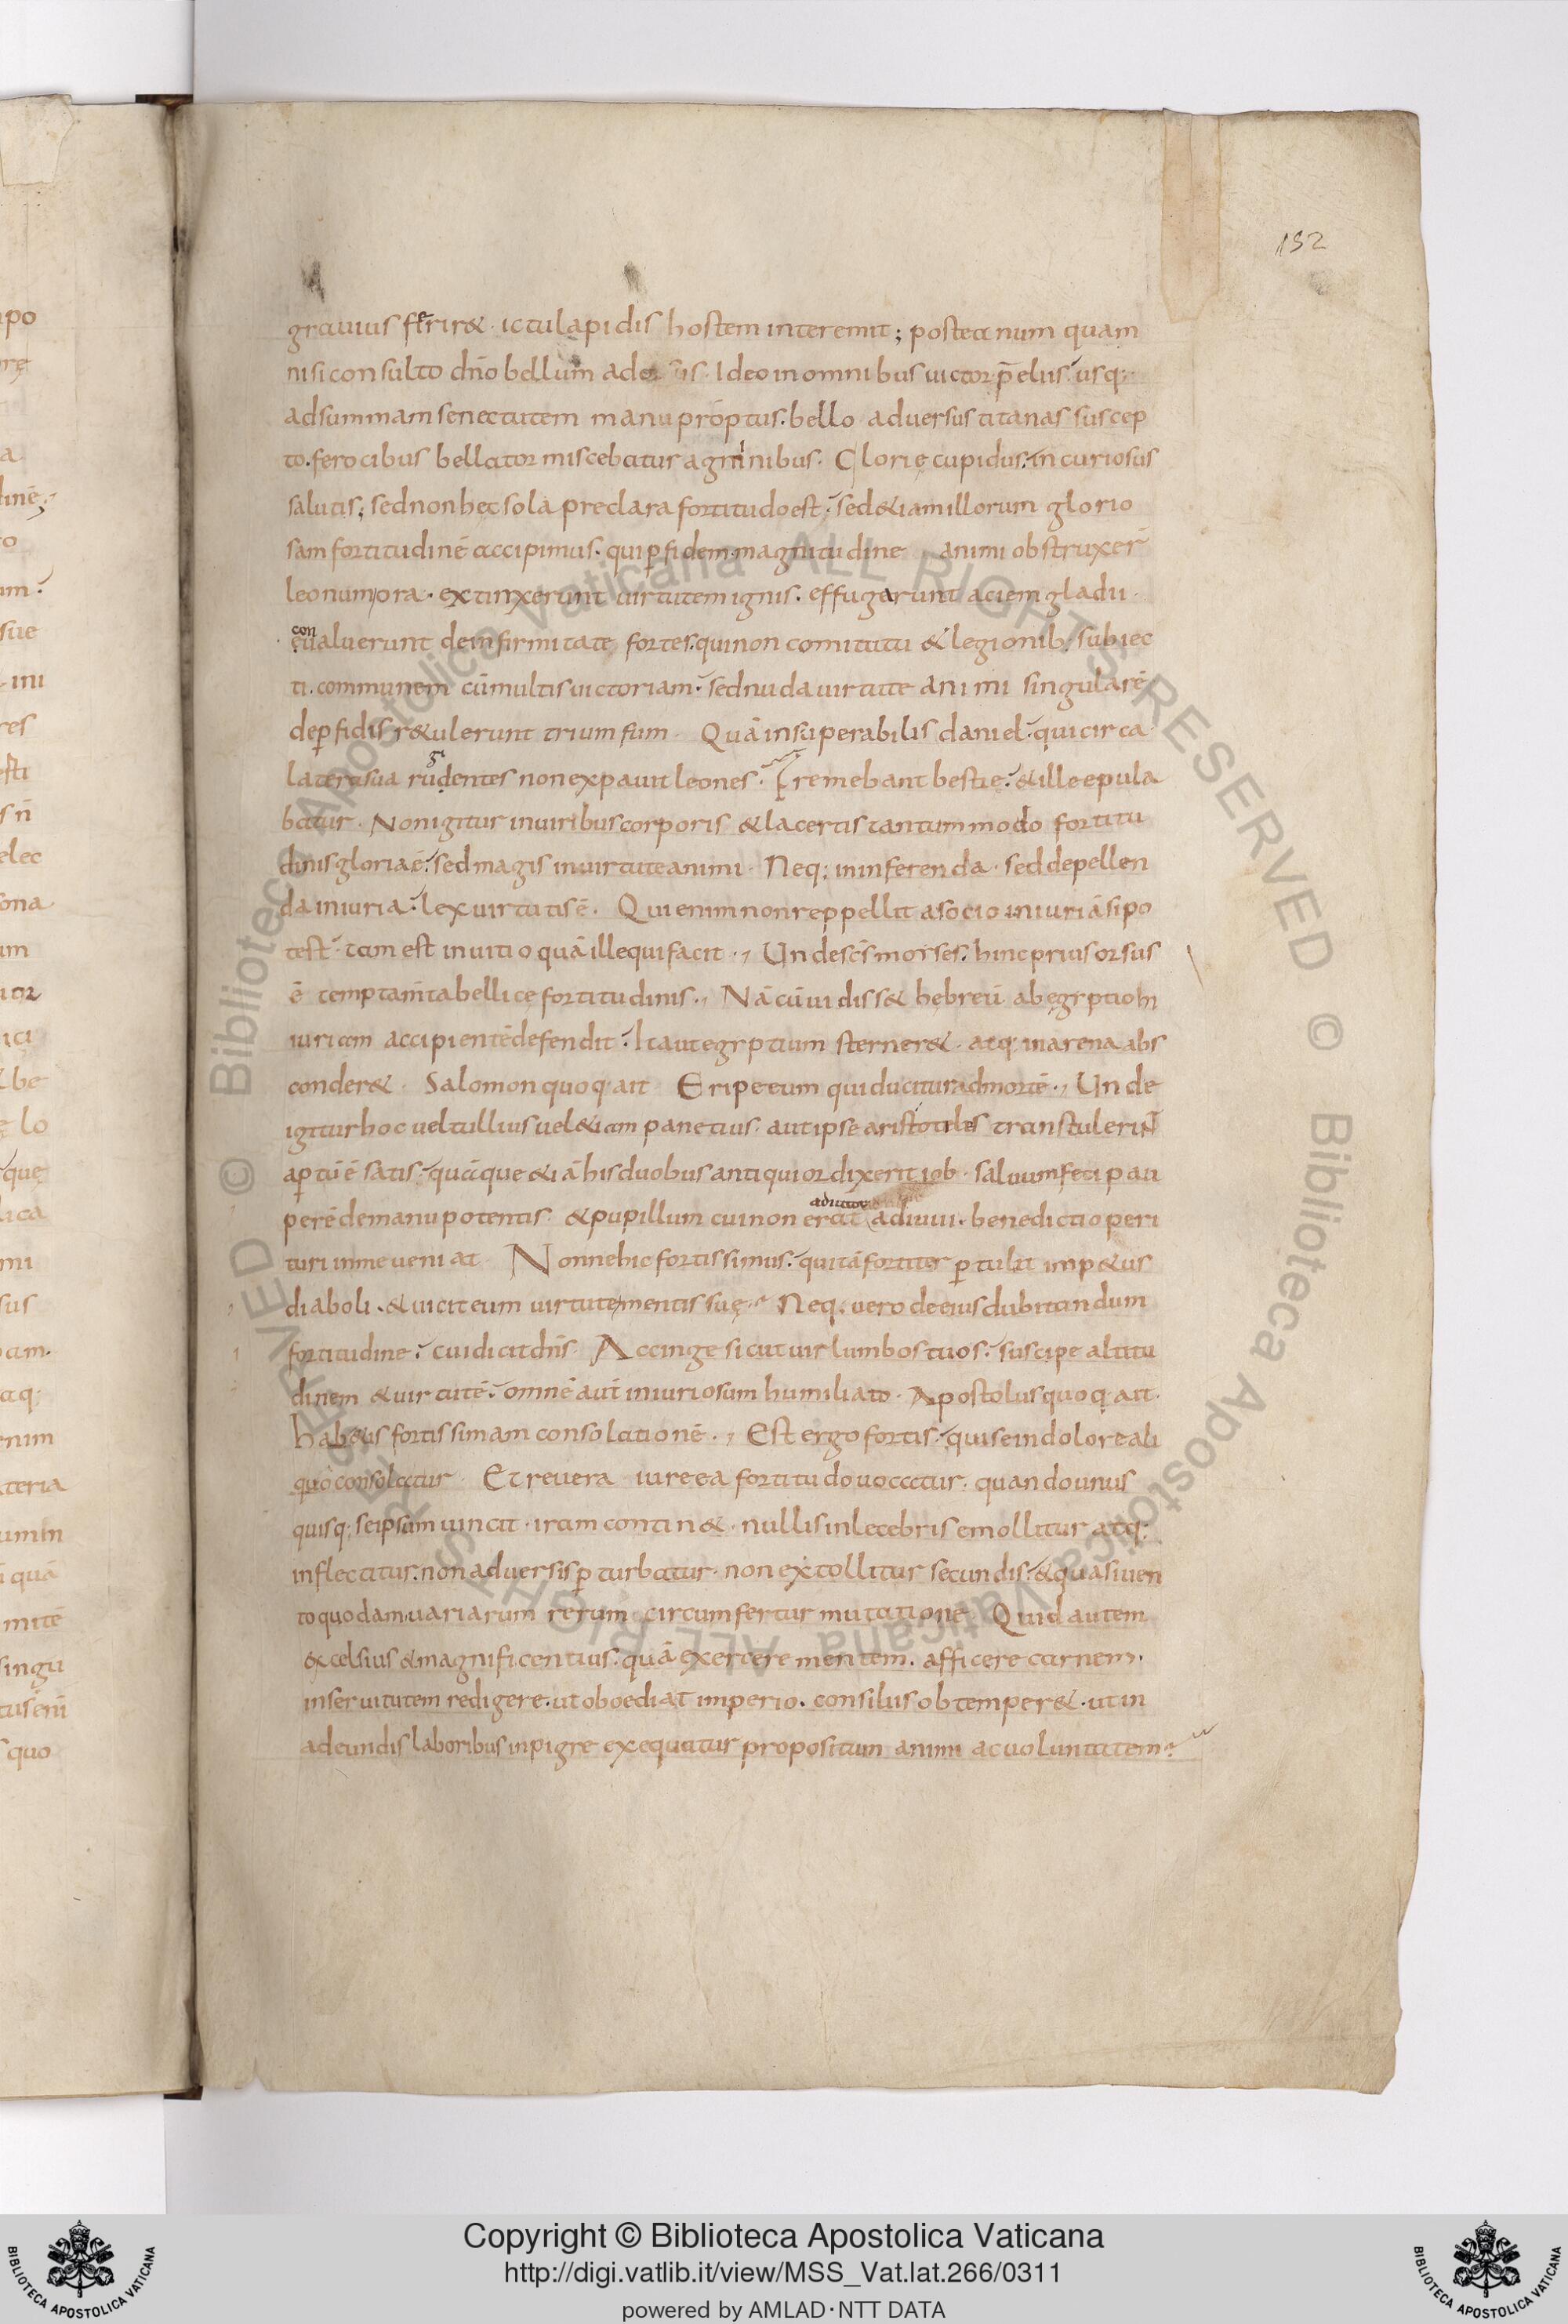 152
grauius ferir& · ictu lapidis hostem interemit; postea num quam
nisi consulto dn̄o bellum ador · Ideo in omnibus uictor p̄eliis · usq;
ad summam senectutem manu prōptus · bello aduersus titanas suscep
to · ferocibus bellator miscebatur agminibus · Glorię cupidus · incuriosus
salutis; sed non hec sola preclara fortitudo est · sed &iam illorum glorio
sam fortitudinē accipimus · qui p̱ fidem magnitudine animi obstruxer̄
leonum ora · extinxerunt uirtutem ignis · effugarunt aciem gladii ·
con
eualuerunt de infirmitate fortes · qui non comitatu & legionib; subiec
ti · communem cū multis uictoriam · sed nuda uirtute animi singularē
de p̱fidis r&ulerunt triumfum · Quā insuperabilis daniel · qui circa
latera sua rudentes non expauit leones · Fremebant bestię · & ille epula
batur · Non igitur in uiribus corporis & lacertis tantum modo fortitu
dinis gloria ē · sed magis in uirtute animi · Neq; in inferenda · sed depellen
da iniuria · lex uirtutis ē · Qui enim non reppellit a socio iniuriā si po
test · tam est in uitio quā ille qui facit · Unde sc̄s moyses · hinc prius orsus
ē temptamta bellice fortitudinis · Nā cū uidiss& hebreū ab ęgyptio in
iuriam accipientē defendit · Ita ut egyptium sterner& · atq; in arena abs
conder& · Salomon quoq · ait Eripe eum qui ducitur ad mortē · Unde
igitur hoc uel tullius uel &iam panetius · aut ipse aristoteles transtulerint
ap̱tū ē satis · quāque &iā his duobus antiquior dixerit iob · saluum feci pau
perē de manu potentis · & pupillum cui non erat adiuui · benedictio peri
adiutor
turi in me ueniat Nonne hic fortissimus · qui tā fortiter p̱tulit imp&us
diaboli · & uicit eum uirtute mentis suę · Neq · uero de eius dubitandum
fortitudine · cui dicit dn̄s · Accinge sicut uir lumbos tuos · suscipe altitu
dinem & uirtutē · omnē aut̄ iniuriosum humiliato · Apostolus quoq · ait ·
habetis fortissimam consolationē · Est ergo fortis · qui se in dolore ali
quo consolatur · Et reuera iure ea fortitudo uocatur · quando unus
quisq; se ipsum uincit · iram contin& · nullis inlecebris emollitur atq;
inflectitur · non aduersis p̱turbatur · non extollitur secundis · & quasi uen
to quodam uariarum rerum circumfertur mutatione · Quid autem
excelsius & magnificentius · quā exercere mentem · afficere carnem ·
in seruitutem redigere · ut oboediat imperio · consiliis obtemper& · ut in
adeundis laboribus inpigre exequatur propositum animi ac uoluntatem
Copyright © Biblioteca Apostolica Vaticana
http://digi.vatlib.it/view/MSS_Vat.lat.266/0311
powered by AMLAD·NTT DATA
BIBLIOTECA APOSTOLICA VATICANA
BIBLIOTECA APOSTOLICA VATICANA
© Biblioteca Apostolica Vaticana ALL RIGHTS RESERVED © Biblioteca Apostolica Vaticana ALL RIGHTS RESERVED